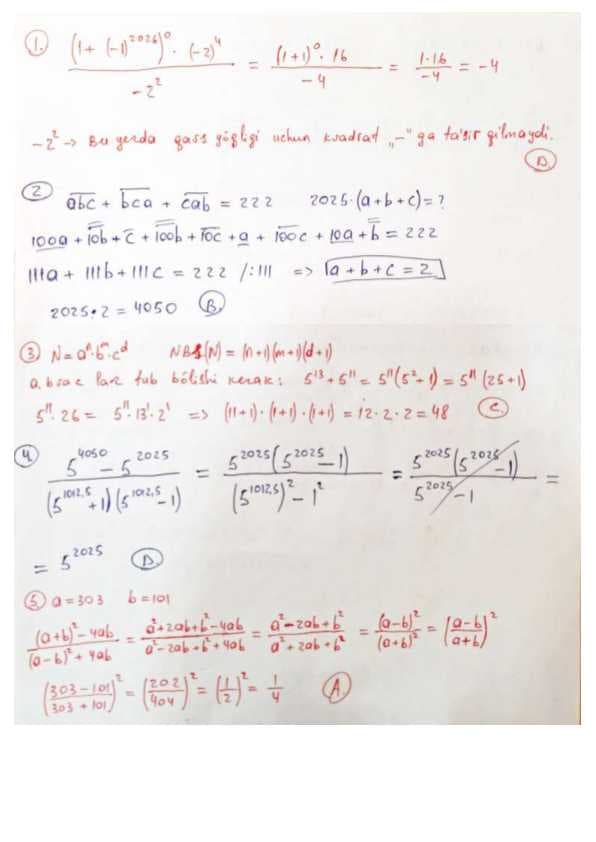 1. (1 + (-1)^2026)^0 · (-2)^4 / -2^2 = (1+1)^0 · 16 / -4 = 1·16 / -4 = -4
-2^2 → Bu yerda qavs yo'qligi uchun kvadrat „-" ga ta'sir qilmaydi.
D.
2 abc + bca + cab = 222 2025·(a+b+c)=?
100a + 10b + c + 100b + 10c + a + 100c + 10a + b = 222
111a + 111b + 111c = 222 /:111 => a+b+c=2
2025·2=4050 B.
3 N=a^n·b^m·c^d NBS(N) = (n+1)(m+1)(d+1)
a, b va c lar tub bo'lishi kerak: 5^13 + 5^11 = 5^11(5^2+1) = 5^11(25+1)
5^11·26 = 5^11·13^1·2^1 => (11+1)·(1+1)·(1+1) = 12·2·2 = 48 C.
4. 5^4050 - 5^2025 / (5^1012,5 + 1)(5^1012,5 - 1) = 5^2025(5^2025 - 1) / (5^1012,5)^2 - 1^2 = 5^2025(5^2025 - 1) / 5^2025 - 1 =
= 5^2025 D.
5. a=303 b=101
(a+b)^2 - 4ab / (a-b)^2 + 4ab = a^2+2ab+b^2-4ab / a^2-2ab+b^2+4ab = a^2-2ab+b^2 / a^2+2ab+b^2 = (a-b)^2 / (a+b)^2 = (a-b / a+b)^2
(303-101 / 303+101)^2 = (202 / 404)^2 = (1/2)^2 = 1/4 A